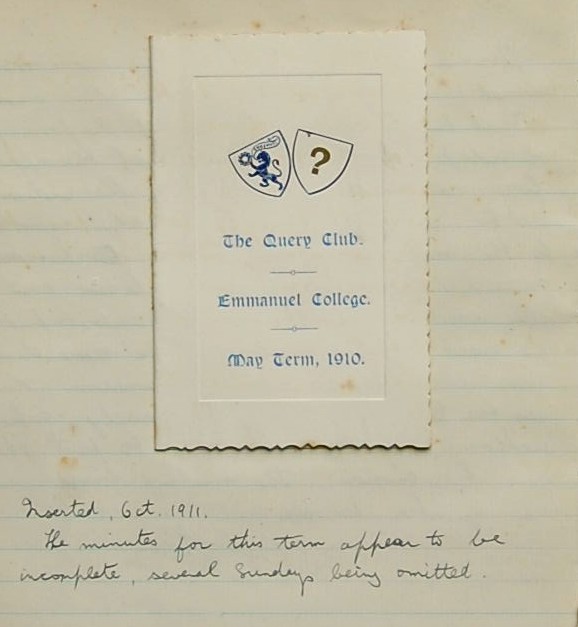 ?
The Query Club.
Emmanuel College.
May Term, 1910.
Inserted, Oct. 1911.
The minutes for this term appear to be
incomplete, several Sundays being omitted.